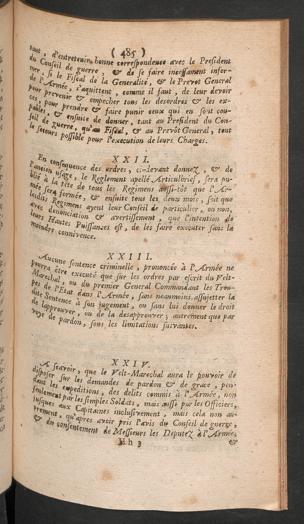 ( 485 )
tout, d'entretenir bonne correspondence avec le President
du Conseil de guerre, & de se faire incessament infor-
mer, si le Fiscal de la Generalité, & le Prevot General
de l'Armée, s'aquittent, comme il faut, de leur devoir
pour prevenir & empecher tous les desordres & les ex-
cés, pour prendre & faire punir ceux qui en sont cou-
pables, & ensuite de donner, tant au President du Con-
seil de guerre, qu'au Fiscal, & au Prevôt General, tout
le secours possible pour l'execution de leurs Charges.
XXII.
En consequence des ordres, ci-devant donnez, & de
l'ancien usage, le Reglement apellé Articulbrief, sera pu-
blié à la tête de tous les Regimens aussi-tôt que l'Ar-
mée sera formée, & ensuite tous les deux mois, soit que
lesdits Regimens ayent leur Conseil de particulier, ou non,
avec denonciation & avertissement, que l'intention de
leurs Hautes Puissances est, de les faire executer sans la
moindre connivence.
XXIII.
Aucune sentence criminelle, prononcée à l'Armée ne
pourra être executé que sur les ordres par escrit du Velt-
Marechal, ou du premier General Commandant les Trou-
pes de l'Etat dans l'Armée, sans neanmoins assujetter la
dite Sentence à son jugement, ou sans lui donner le droit
de l'approuver, ou de la desaprouver; autrement que par
voye de pardon, sous les limitations suivantes.
XXIV.
A sçavoir, que le Velt-Marechal aura le pouvoir de
disposer sur les demandes de pardon & de grace, pen-
dant les expeditions, des delits commis à l'Armée, non
seulement par les simples Soldats, mais aussi par les Officiers,
jusques aux Capitaines inclusivement, mais cela non au-
trement, qu'apres avoir pris l'avis du Conseil de guerre,
& du consentement de Messieurs les Deputez à l'Armée,
Hh 3 &